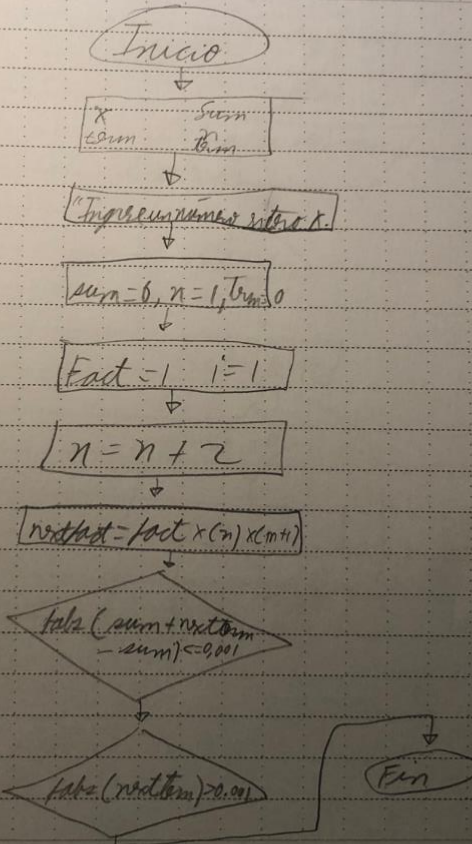 Inicio
x sum
term
"Ingrese un número entero x.
sum=0, n=1, Term=0
Fact=1 i=1
n=n+2
nextfact=fact x(n) x(n+1)
fabs(sum+nextterm
-sum)<=0,001
fabs(nextterm)>0.001
Fin